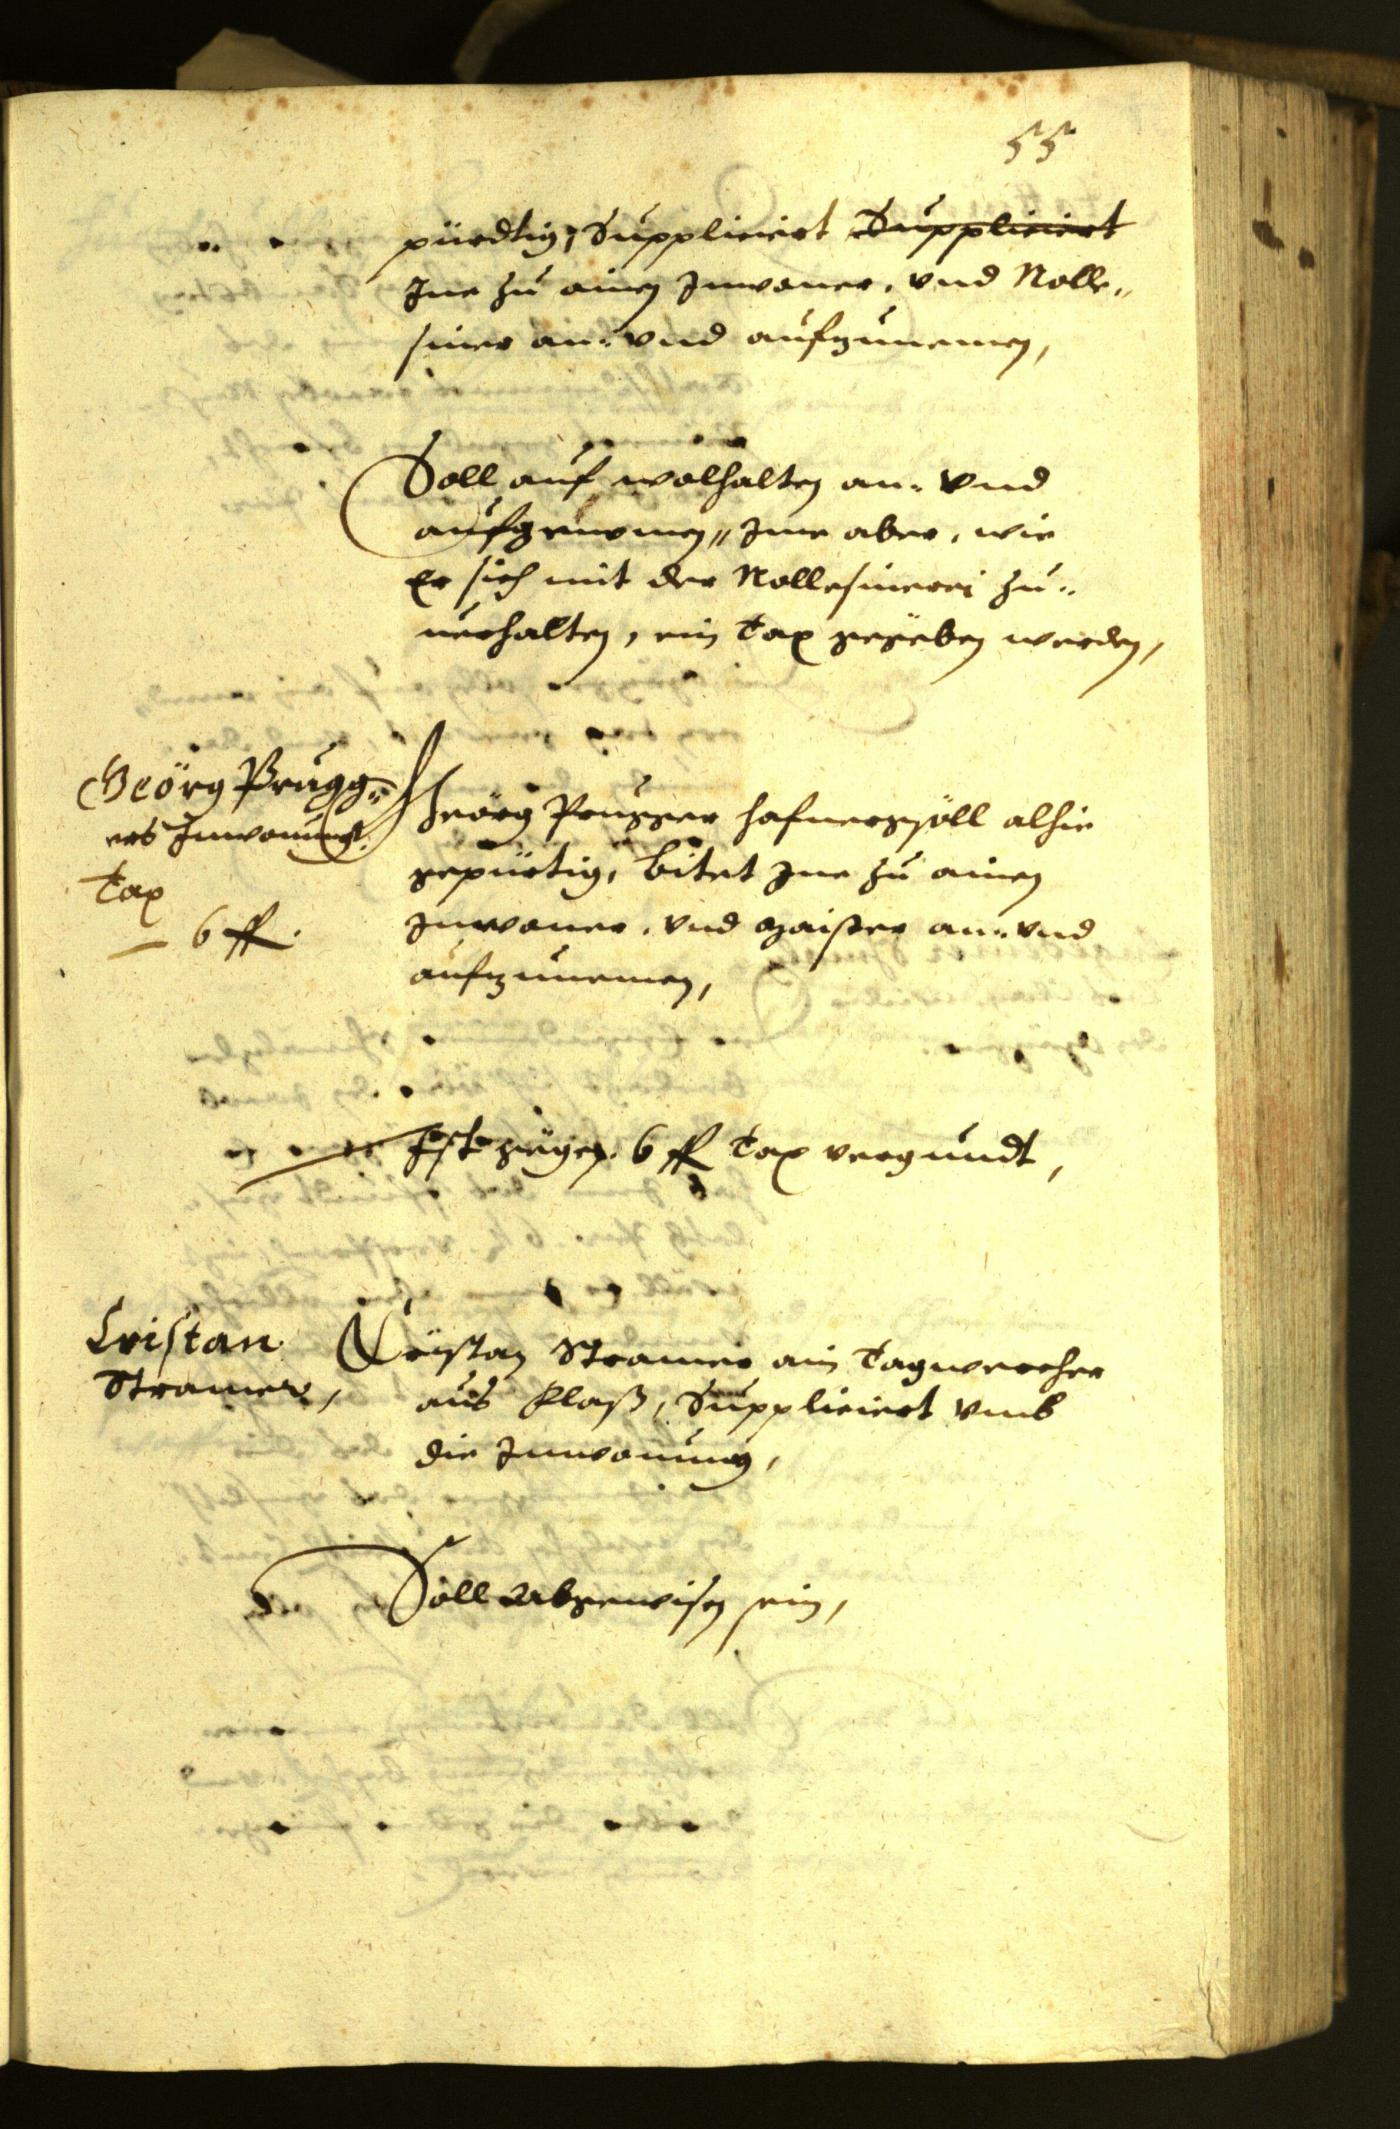 55
pürdtig, Suppliciert Suppliciert
Ine zu ainen Inwoner, vnd Nolle„
siner an„ vnd aufzunemen,
Soll auf wolhalten an„ vnd
aufgenomen„ Ime aber, wie
Er sich mit der Nollesinerei zu„
uerhalten, ein Tax gegeben werden,
Geörg Prugg„
ers Inwonung.
Tax
6 ff.
Geörg Prugger hafnergsöll alhie
gepürtig, bitet Ine zu ainen
Inwoner, vnd Maister an„ vnd
aufzunemen,
Ist gegen 6 ff Tax vergundt,
Cristan
Stramer,
Cristan Stramer ain Tagwercher
aus Klaß, Suppliciert vmb
die Inwonung,
Soll Abgewisen sein,